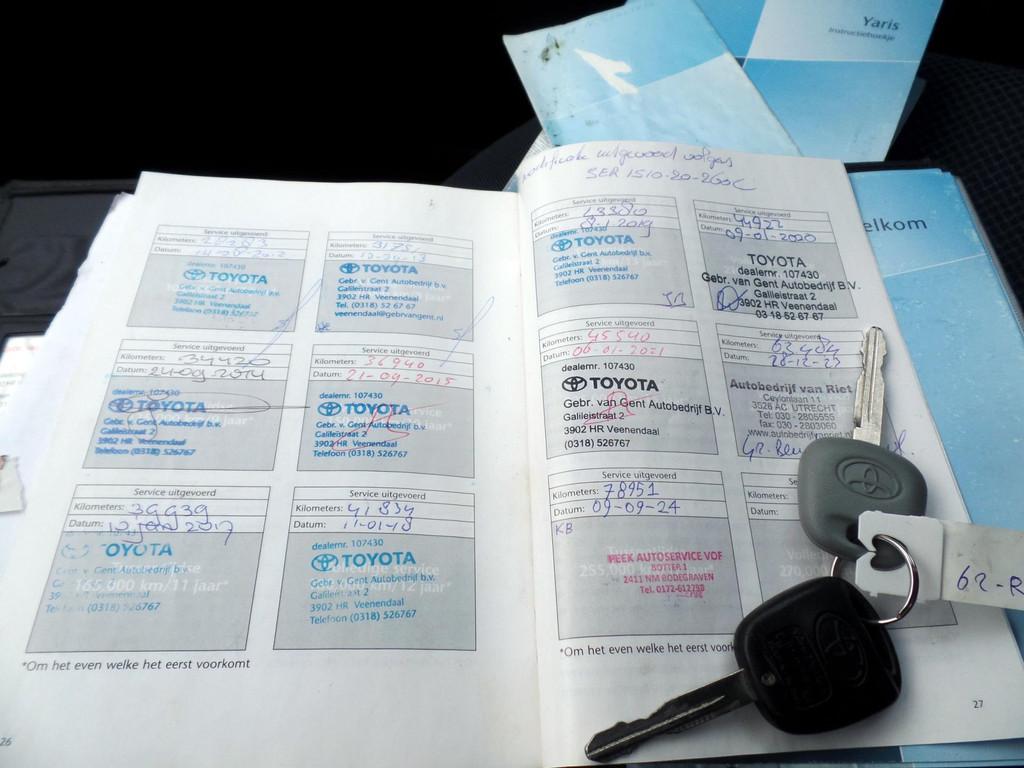 Yaris
Instructieboekje
elkom
uitgevoerd volgens
SER 1510-20-260C
Service uitgevoerd
Kilometers:
Datum:
dealernr. 107430
TOYOTA
Gebr. v. Gent Autobedrijf b.v.
Galileistraat 2
3902 HR Veenendaal
Telefoon (0318) 526767
Service uitgevoerd
Kilometers:
Datum:
TOYOTA
Gebr. v. Gent Autobedrijf b.v.
Galileistraat 2
3902 HR Veenendaal
Tel. (0318) 52 67 67
veenendaal@gebrvangent.nl
Service uitgevoerd
Kilometers: 34426
Datum: 24-09-2014
dealernr. 107430
TOYOTA
Gebr. v. Gent Autobedrijf b.v.
Galileistraat 2
3902 HR Veenendaal
Telefoon (0318) 526767
Service uitgevoerd
Kilometers: 36940
Datum: 21-09-2015
dealernr. 107430
TOYOTA
Gebr. v. Gent Autobedrijf b.v.
Galileistraat 2
3902 HR Veenendaal
Telefoon (0318) 526767
Service uitgevoerd
Kilometers: 39939
Datum: 10 jan 2017
TOYOTA
165.000 km/11 jaar*
(0318) 526767
Service uitgevoerd
Kilometers: 41834
Datum: 11-01-18
dealernr. 107430
TOYOTA
Gebr. v. Gent Autobedrijf b.v.
Galileistraat 2
3902 HR Veenendaal
Telefoon (0318) 526767
*Om het even welke het eerst voorkomt
26
Service uitgevoerd
Kilometers: 43380
Datum: 2019
dealernr. 107430
TOYOTA
Gebr. v. Gent Autobedrijf b.v.
Galileistraat 2
3902 HR Veenendaal
Telefoon (0318) 526767
Service uitgevoerd
Kilometers: 44922
Datum: 09-01-2020
TOYOTA
dealernr. 107430
Gebr. van Gent Autobedrijf B.V.
Galileistraat 2
3902 HR Veenendaal
03 18 52 67 67
Service uitgevoerd
Kilometers: 45540
Datum: 06-01-2021
dealernr. 107430
TOYOTA
Gebr. van Gent Autobedrijf B.V.
Galileistraat 2
3902 HR Veenendaal
(0318) 526767
Service uitgevoerd
Kilometers: 63484
Datum: 28-12-22
Autobedrijf van Riet
Ceylonlaan 11
3526 AC UTRECHT
Tel: 030 - 2805555
fax: 030 - 2803060
Service uitgevoerd
Kilometers: 78951
Datum: 09-09-24
KB
PEEK AUTOSERVICE VOF
BOTTER 1
2411 NM BODEGRAVEN
Tel. 0172-612758
Se
Kilometers:
Datum:
270.000
*Om het even welke het eerst voor
27
62-R